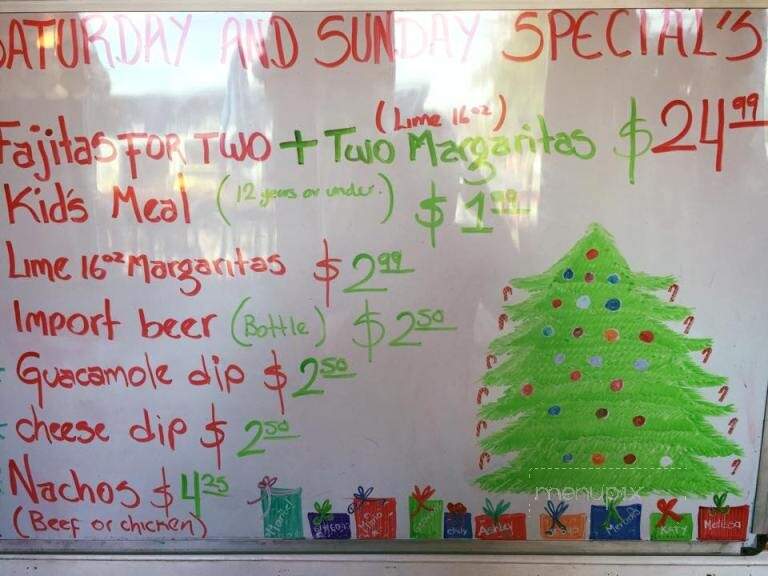 SATURDAY AND SUNDAY SPECIAL'S
(Lime 16oz)
Fajitas FOR TWO + Two Margaritas $24.99
Kid's Meal (12 years or under.) $1.99
Lime 16oz Margaritas $2.99
Import beer (Bottle) $2.50
Guacamole dip $2.50
cheese dip $2.50
Nachos $4.25
(Beef or chicken)
menupix
Ashley KATY Melissa